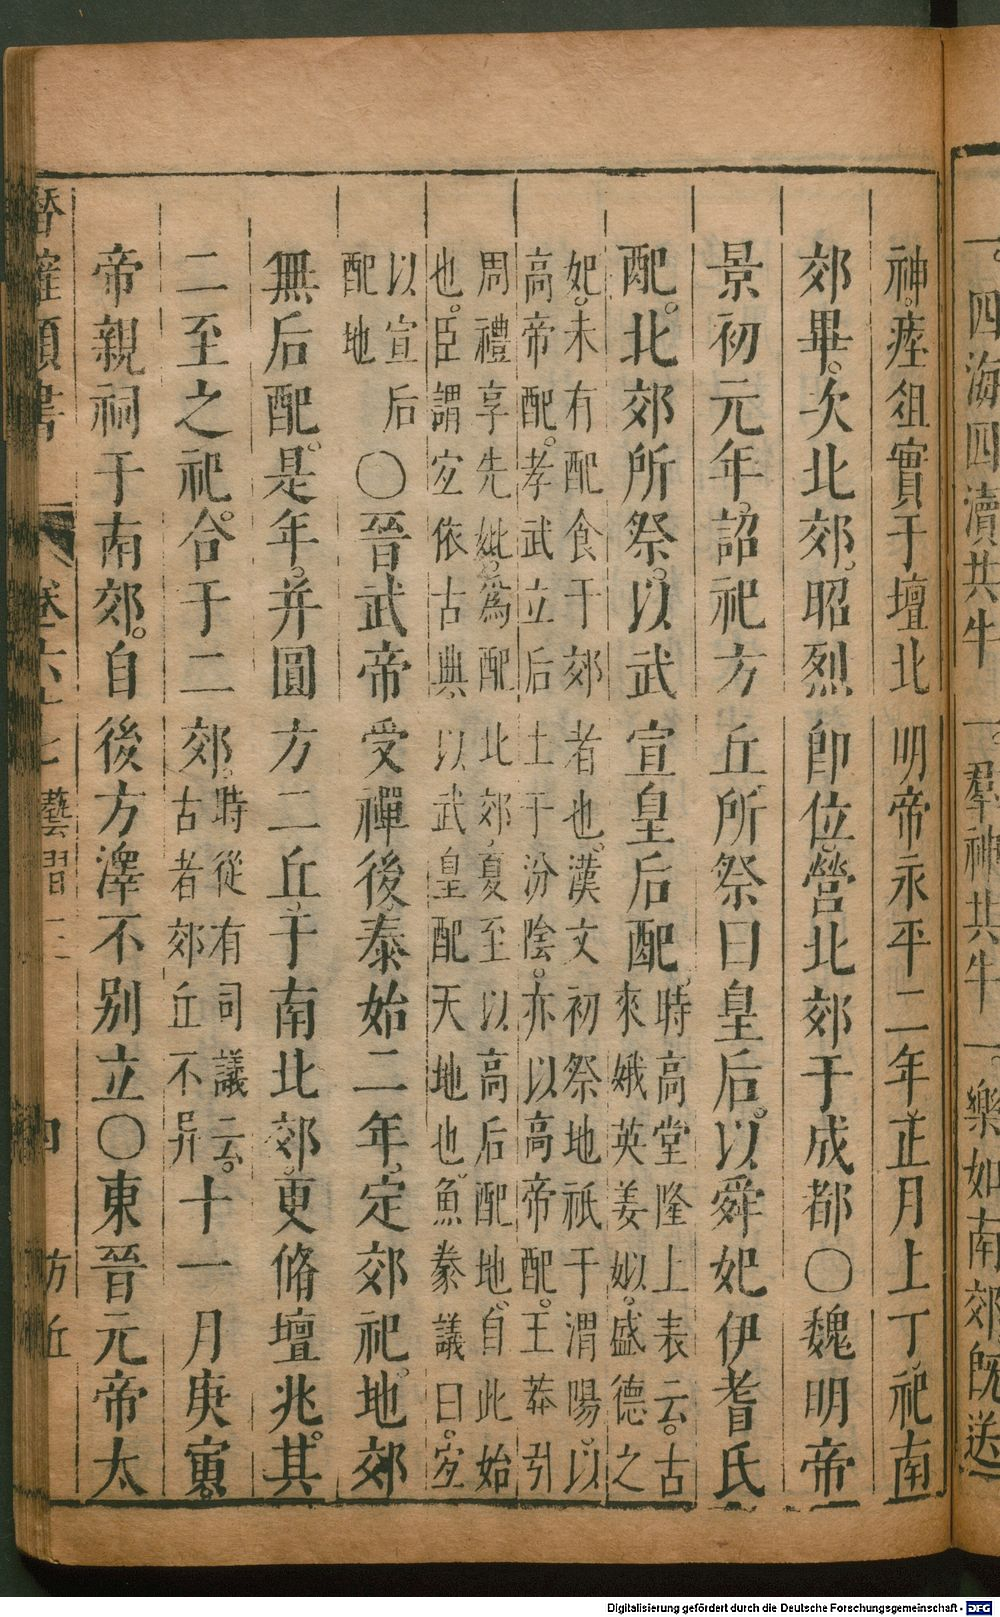 一。四海四瀆共牛一。羣神共牛一。樂如南郊旣送
神。瘞俎實于壇北明帝永平二年正月上丁。祀南
郊畢。次北郊。昭烈卽位。營北郊于成都〇魏明帝
景初元年。詔祀方丘。所祭曰皇皇后。以舜妃伊耆氏
配。北郊所祭。以武宣皇后配。時高堂隆上表云。古
來娥英姜姒。盛德之
妃。未有配食于郊者也。漢文初祭地祇于渭陽。以
高帝配。孝武立后土于汾陰。亦以高帝配。王莽引
周禮享先妣。爲配北郊。夏至以高后配地。自此始
也。臣謂宐依古典。以武皇配天地也。魚豢議曰。宐
以宣后
配地
〇晉武帝受禪後泰始二年。定郊祀。地郊
無后配。是年。并圓方二丘。于南北郊。更脩壇兆。其
二至之祀。合于二郊。時從有司議云。
古者郊丘不异
十一月庚寅。
帝親祠于南郊。自後方澤不別立〇東晉元帝太
類書
卷六十七
藝習
四
方丘
Digitalisierung gefördert durch die Deutsche Forschungsgemeinschaft - DFG